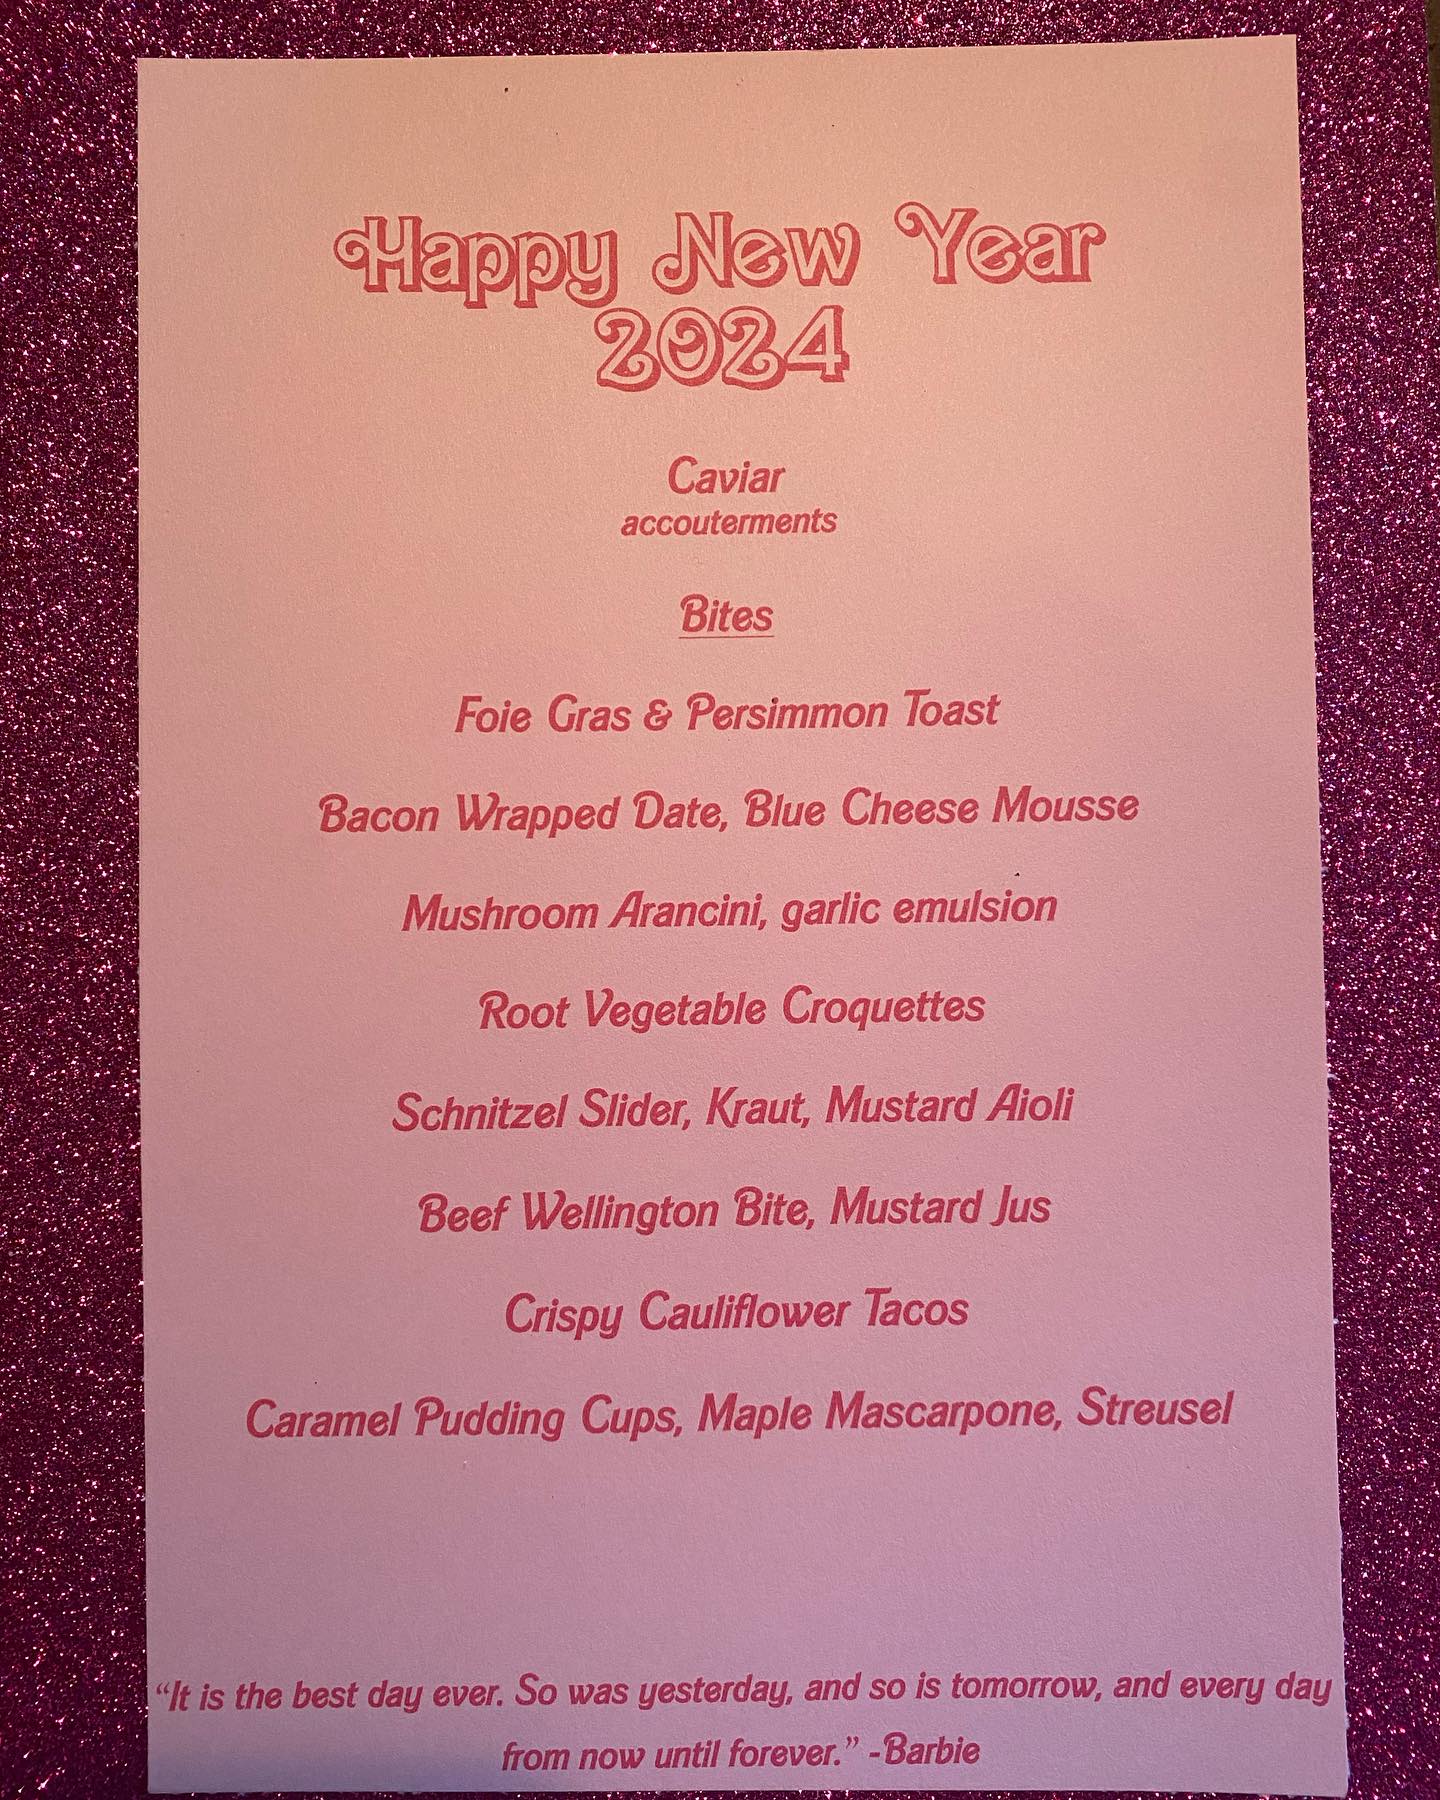 Happy New Year
2024
Caviar
accouterments
Bites
Foie Gras & Persimmon Toast
Bacon Wrapped Date, Blue Cheese Mousse
Mushroom Arancini, garlic emulsion
Root Vegetable Croquettes
Schnitzel Slider, Kraut, Mustard Aioli
Beef Wellington Bite, Mustard Jus
Crispy Cauliflower Tacos
Caramel Pudding Cups, Maple Mascarpone, Streusel
“It is the best day ever. So was yesterday, and so is tomorrow, and every day
from now until forever.” -Barbie